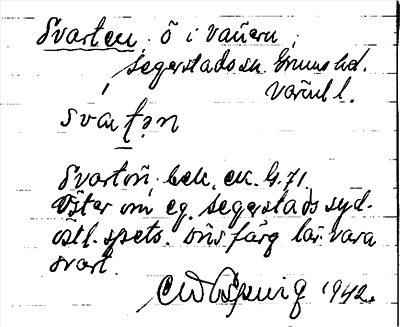 Svarten, ö i Vänern,
Segerstads sn. Grums hd.
Värml l.
svaṭ:ən
Svartön, bek. ek. bl. 71,
Öster om eg. Segerstads syd-
östl. spets. Öns färg lär vara
svart.
1942.